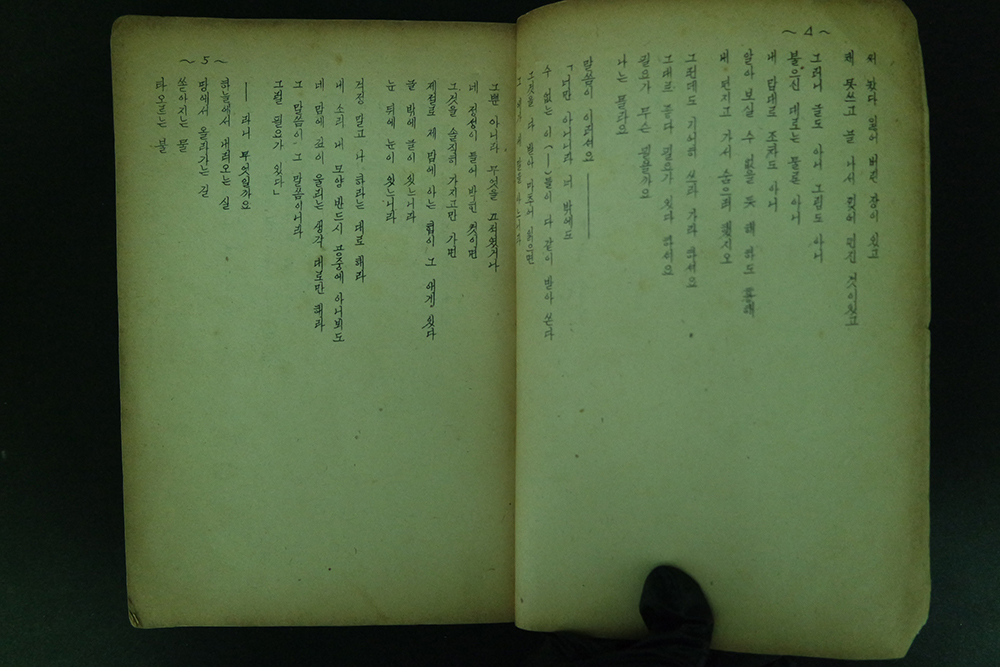 ~ 4 ~
써 놨다 잃어 버린 장이 있고
왜 못쓰고 늘 나서 찢어 던진 것이 있고
그러니 글도 아니 그림도 아니
붉으신 대로는 물론 아니
내 맘대로 조차도 아니
알아 보실 수 없을 듯 해 하도
내 던지고 가서 숨으려 했지오
그런데도 기어히 쓰라 가라 하셔요
그대로 좋다 필요가 있다 하셔요
필요가 무슨 필요일까요
나는 몰라요
말씀이 이러셔요 ———
「너만 아니니라 너 밖에도
수 없는 이(—)들이 다 같이 받아 쓴다
그것을 다 받아
그뿐 아니라 무엇을 끄적였거나
네 정성이 들어 박힌 것이면
그것을 솔직히 가지고만 가면
제절로 제 맘에 아는 힘이 그 애게 있다
글 밖에 글이 있느니라
눈 뒤에 눈이 있느니라
걱정 말고 나 하라는 대로 해라
내 소리 내 모양 반드시 공중에 아니뵈도
네 맘에 고이 울리는 생각 대로만 해라
그 맘씀이 그 말씀이니라
그럴 필요가 있다」
—— 라니 무엇일까요
하늘에서 내려오는 실
땅에서 올라가는 길
쏟아지는 물
타오르는 불
~ 5 ~